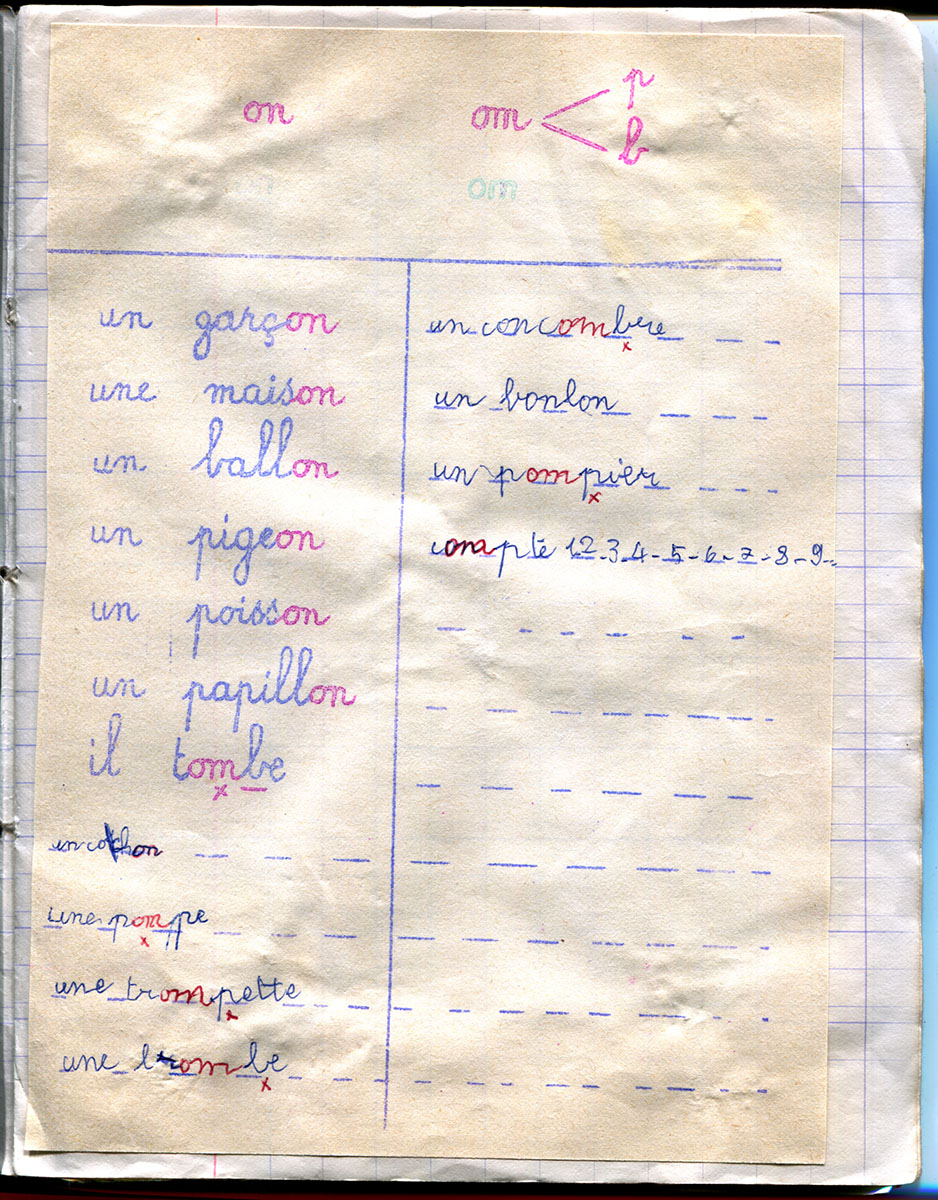 on
om p
b
om
un garçon
une maison
un ballon
un pigeon
un poisson
un papillon
il tombe
un cochon
une pomppe
une trompette
une bombe
un concombre
un bonlon
un pompier
compte 1 2 - 3 - 4 - 5 - 6 - 7 - 8 - 9 - -